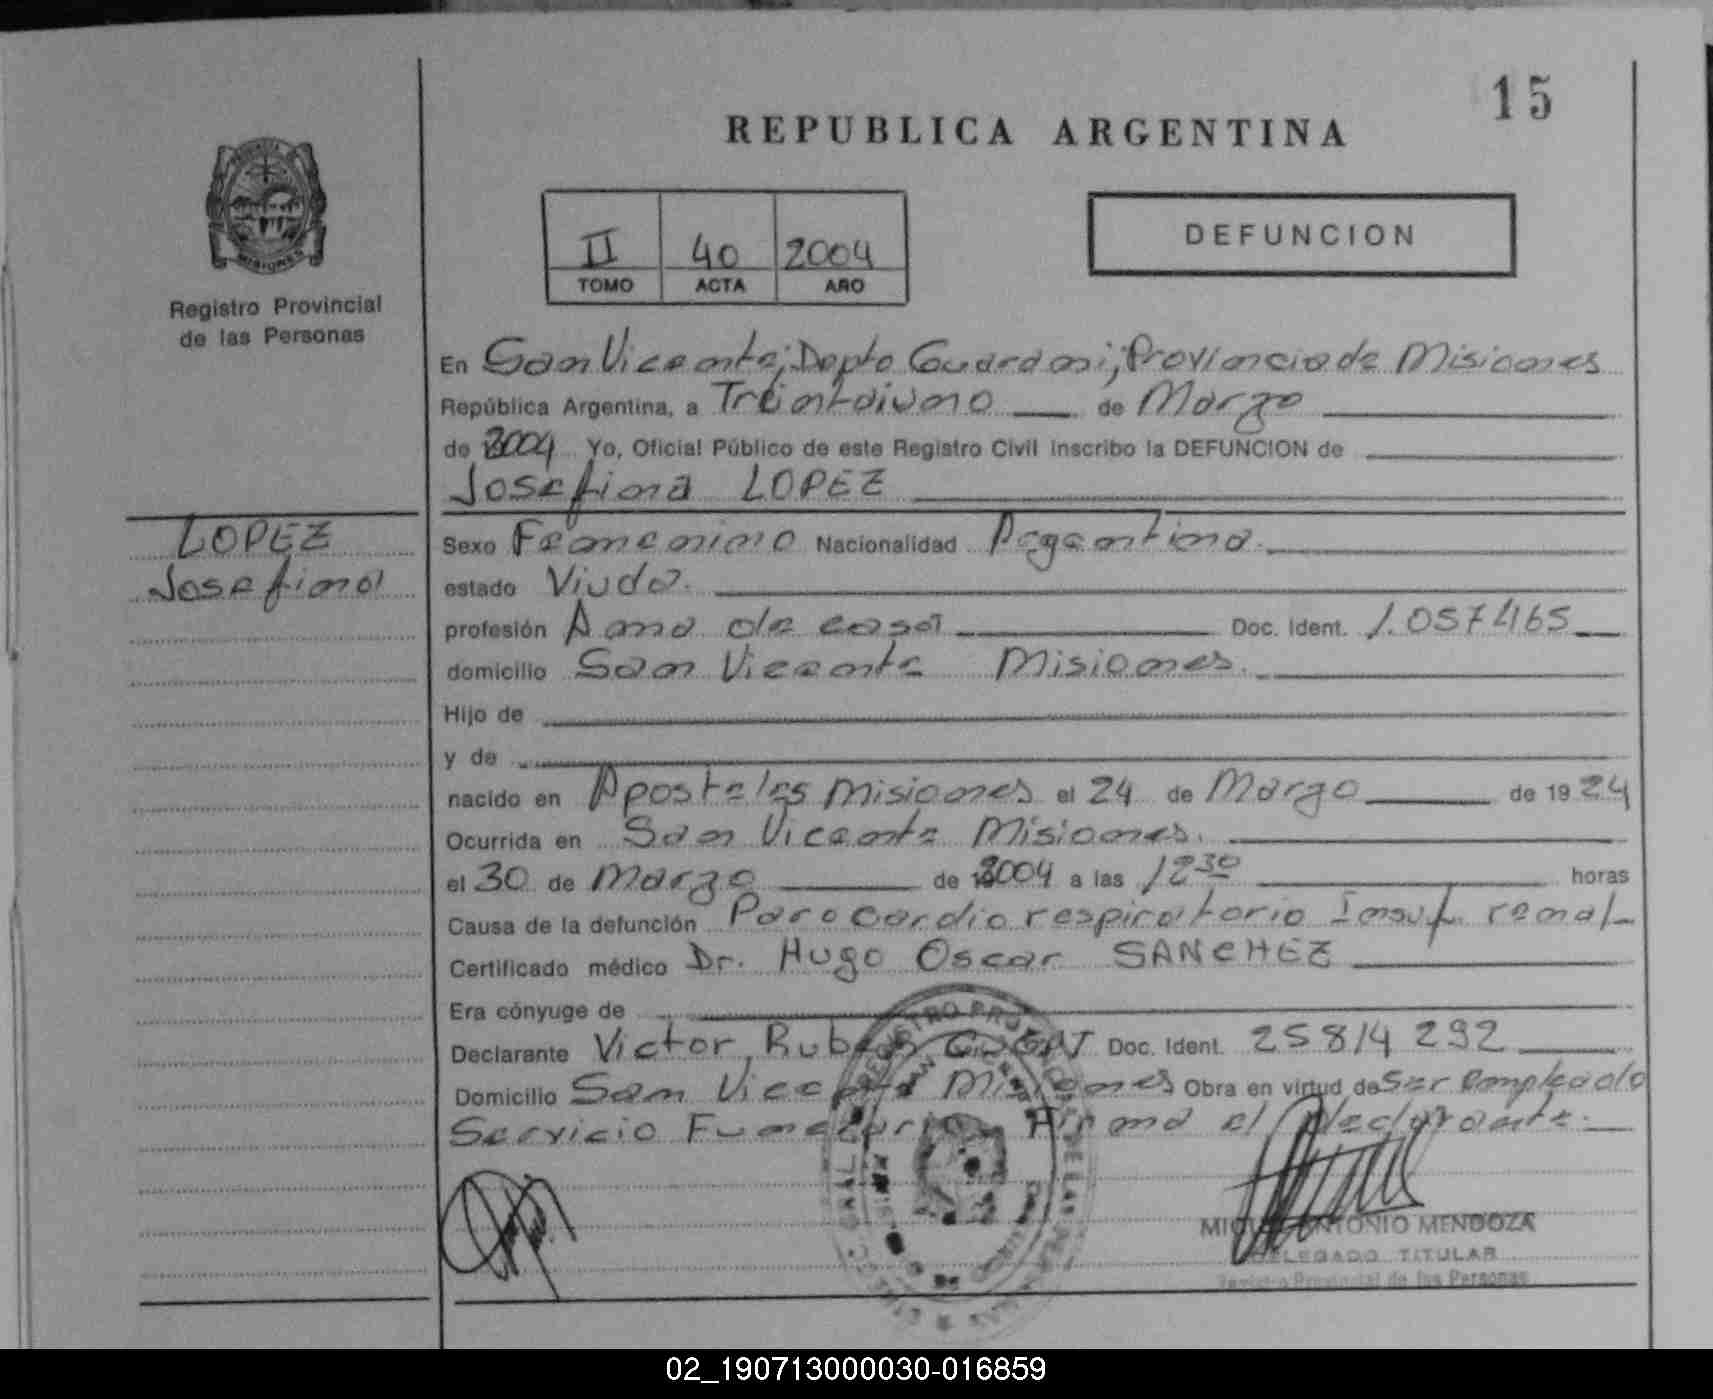 15
REPUBLICA ARGENTINA
PROVINCIA
MISIONES
Registro Provincial
de las Personas
II 40 2004
TOMO ACTA AÑO
DEFUNCION
En San Vicente, Depto Guarani, Provincia de Misiones
República Argentina, a Treintaiuno de Marzo
de 2004 Yo, Oficial Público de este Registro Civil inscribo la DEFUNCION de
Josefina LOPEZ
LOPEZ
Josefina
Sexo Femenino Nacionalidad Argentina.
estado Viuda.
profesión Ama de casa Doc. Ident. 1.057465
domicilio San Vicente Misiones.
Hijo de
y de
nacido en Apostoles Misiones el 24 de Marzo de 1924
Ocurrida en San Vicente Misiones.
el 30 de Marzo de 2004 a las 12 30 horas
Causa de la defunción Paro cardio respiratorio Insuf. renal
Certificado médico Dr. Hugo Oscar SANCHEZ
Era cónyuge de
Declarante Victor Ruben Doc. Ident. 25814 292
Domicilio San Vicente Misiones Obra en virtud de Ser Empleado
Servicio Funerario Firma el declarante.
REGISTRO PROVINCIAL DE LAS PERSONAS
MIGUEL ANTONIO MENDOZA
DELEGADO TITULAR
Registro Provincial de las Personas
02_190713000030-016859